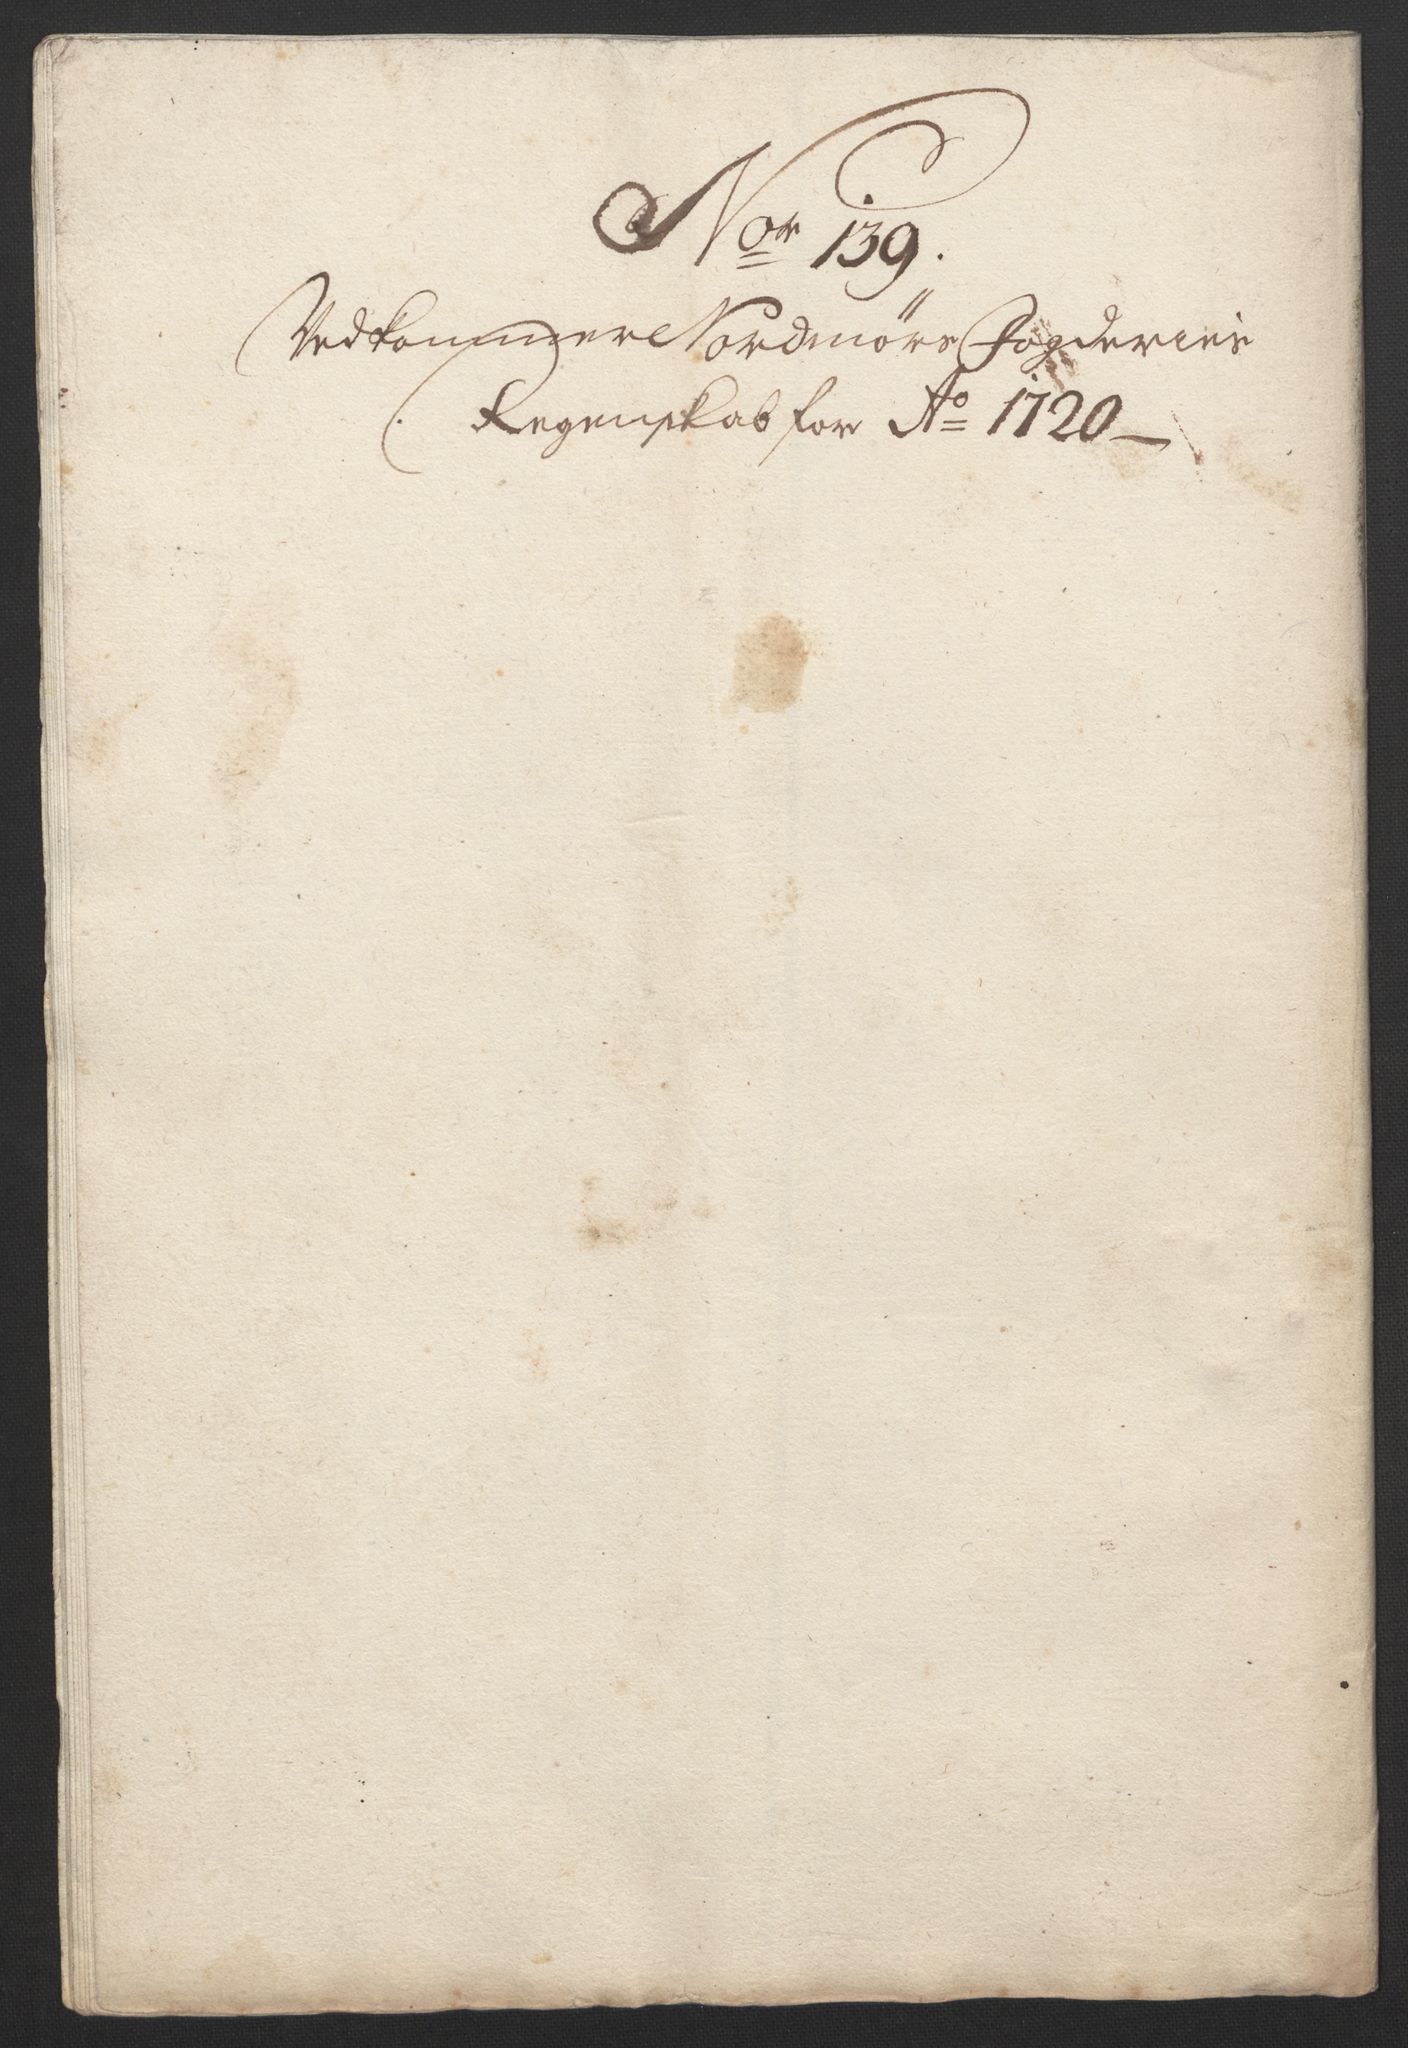 Nor 139.
Vedkommer Nordmørs Fogderies
Regenskab for Ao 1720